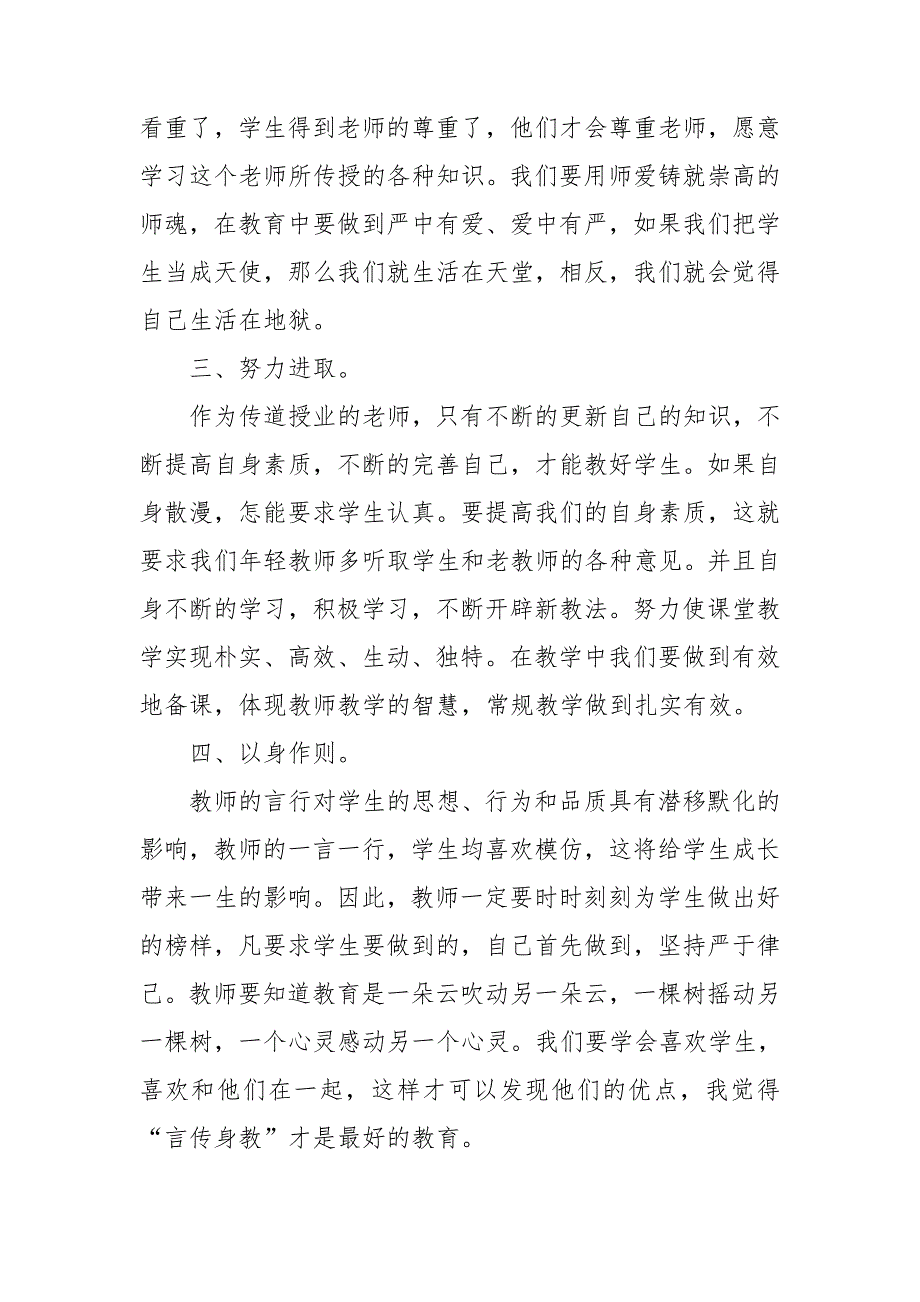 看重了，学生得到老师的尊重了，他们才会尊重老师，愿意
学习这个老师所传授的各种知识。我们要用师爱铸就崇高的
师魂，在教育中要做到严中有爱、爱中有严，如果我们把学
生当成天使，那么我们就生活在天堂，相反，我们就会觉得
自己生活在地狱。
三、努力进取。
作为传道授业的老师，只有不断的更新自己的知识，不
断提高自身素质，不断的完善自己，才能教好学生。如果自
身散漫，怎能要求学生认真。要提高我们的自身素质，这就
要求我们年轻教师多听取学生和老教师的各种意见。并且自
身不断的学习，积极学习，不断开辟新教法。努力使课堂教
学实现朴实、高效、生动、独特。在教学中我们要做到有效
地备课，体现教师教学的智慧，常规教学做到扎实有效。
四、以身作则。
教师的言行对学生的思想、行为和品质具有潜移默化的
影响，教师的一言一行，学生均喜欢模仿，这将给学生成长
带来一生的影响。因此，教师一定要时时刻刻为学生做出好
的榜样，凡要求学生要做到的，自己首先做到，坚持严于律
己。教师要知道教育是一朵云吹动另一朵云，一棵树摇动另
一棵树，一个心灵感动另一个心灵。我们要学会喜欢学生，
喜欢和他们在一起，这样才可以发现他们的优点，我觉得
“言传身教”才是最好的教育。